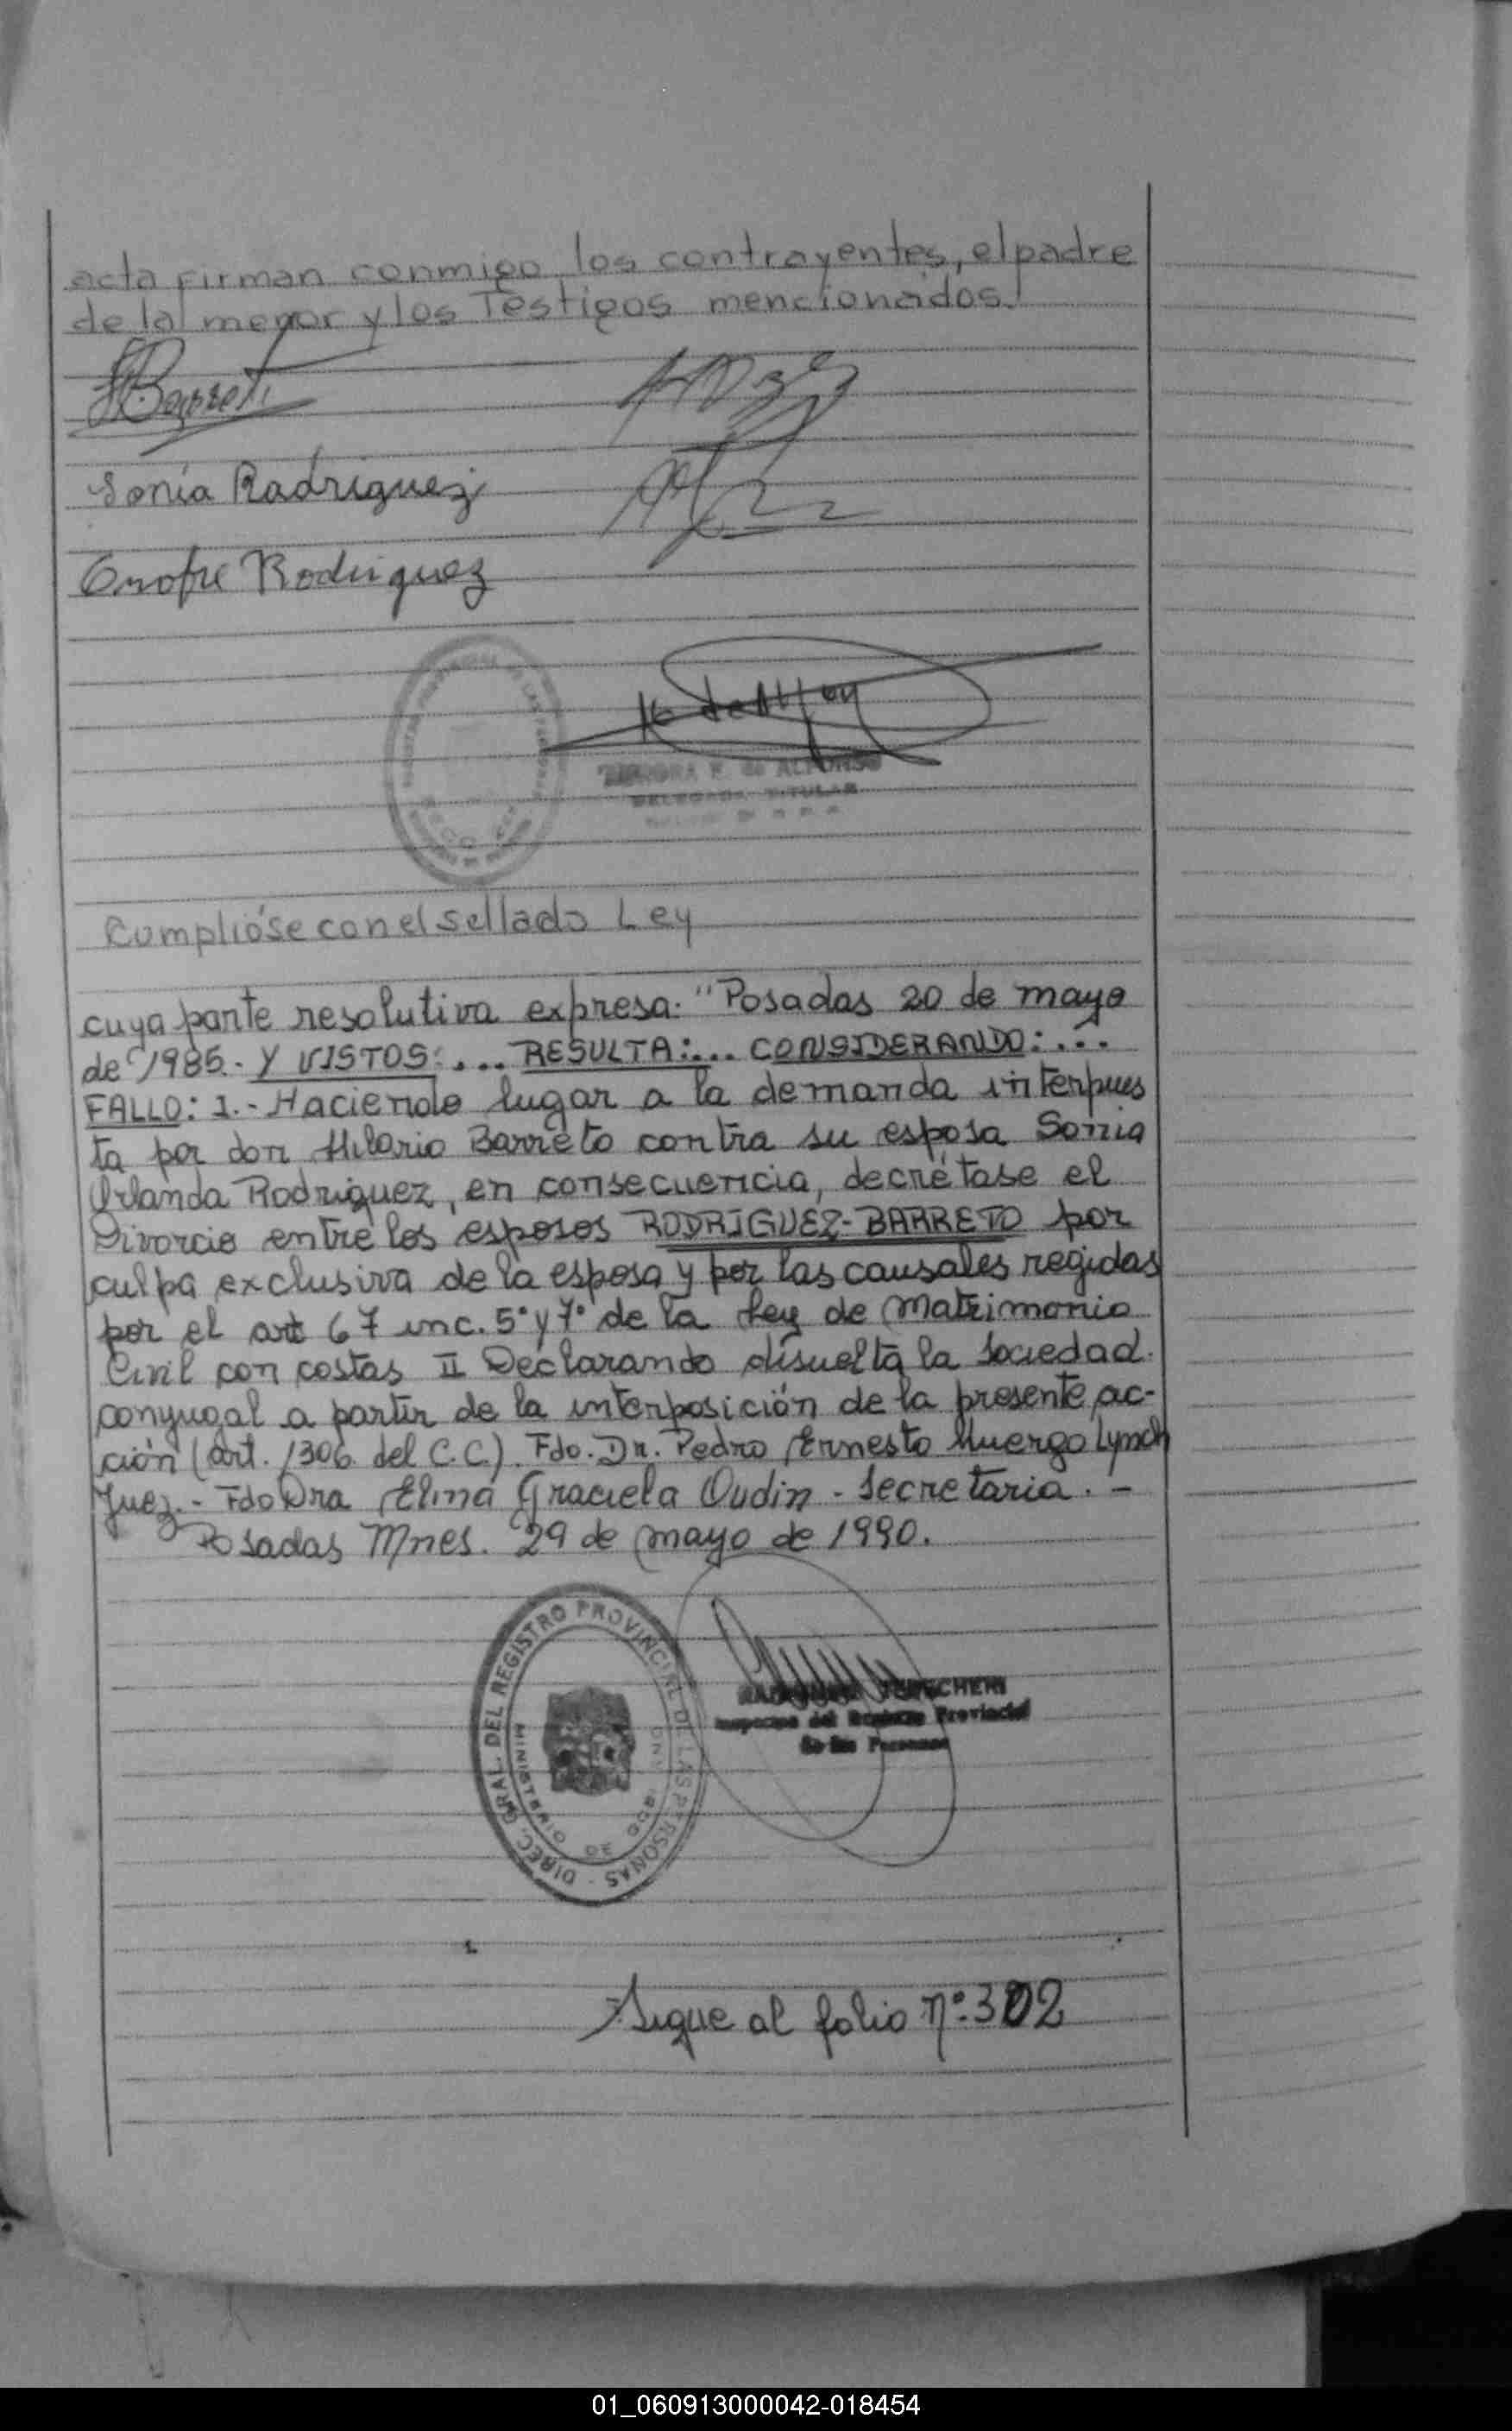 acta firman conmigo los contrayentes, el padre
de la menor y los Testigos mencionados.
HBarreto
Sonia Rodriguez
Onofre Rodriguez
de ALFONSO
DELEGADA TITULAR
Cumplióse con el sellado Ley
cuya parte resolutiva expresa: "Posadas 20 de mayo
de 1985.- Y VISTOS:... RESULTA:... CONSIDERANDO:...
FALLO: 1.- Haciendo lugar a la demanda interpues
ta por don Hilario Barreto contra su esposa Sonia
Orlanda Rodriguez, en consecuencia, decrétase el
Divorcio entre los esposos RODRIGUEZ-BARRETO por
culpa exclusiva de la esposa y por las causales regidas
por el art 67 inc. 5° y 7° de la Ley de Matrimonio
Civil con costas II Declarando disuelta la sociedad
conyugal a partir de la interposición de la presente ac-
ción (art. 1306. del C.C.). Fdo. Dr. Pedro Ernesto Muergo Lynch
Juez.- Fdo Dra Elina Graciela Oudin - Secretaria. -
Posadas Mnes. 29 de mayo de 1990.
DIREC. GRAL. DEL REGISTRO PROVINCIAL DE LAS PERSONAS
MINISTERIO DE GOB.
del Registro Provincial
de las Personas
Sigue al folio N°: 302
01_060913000042-018454